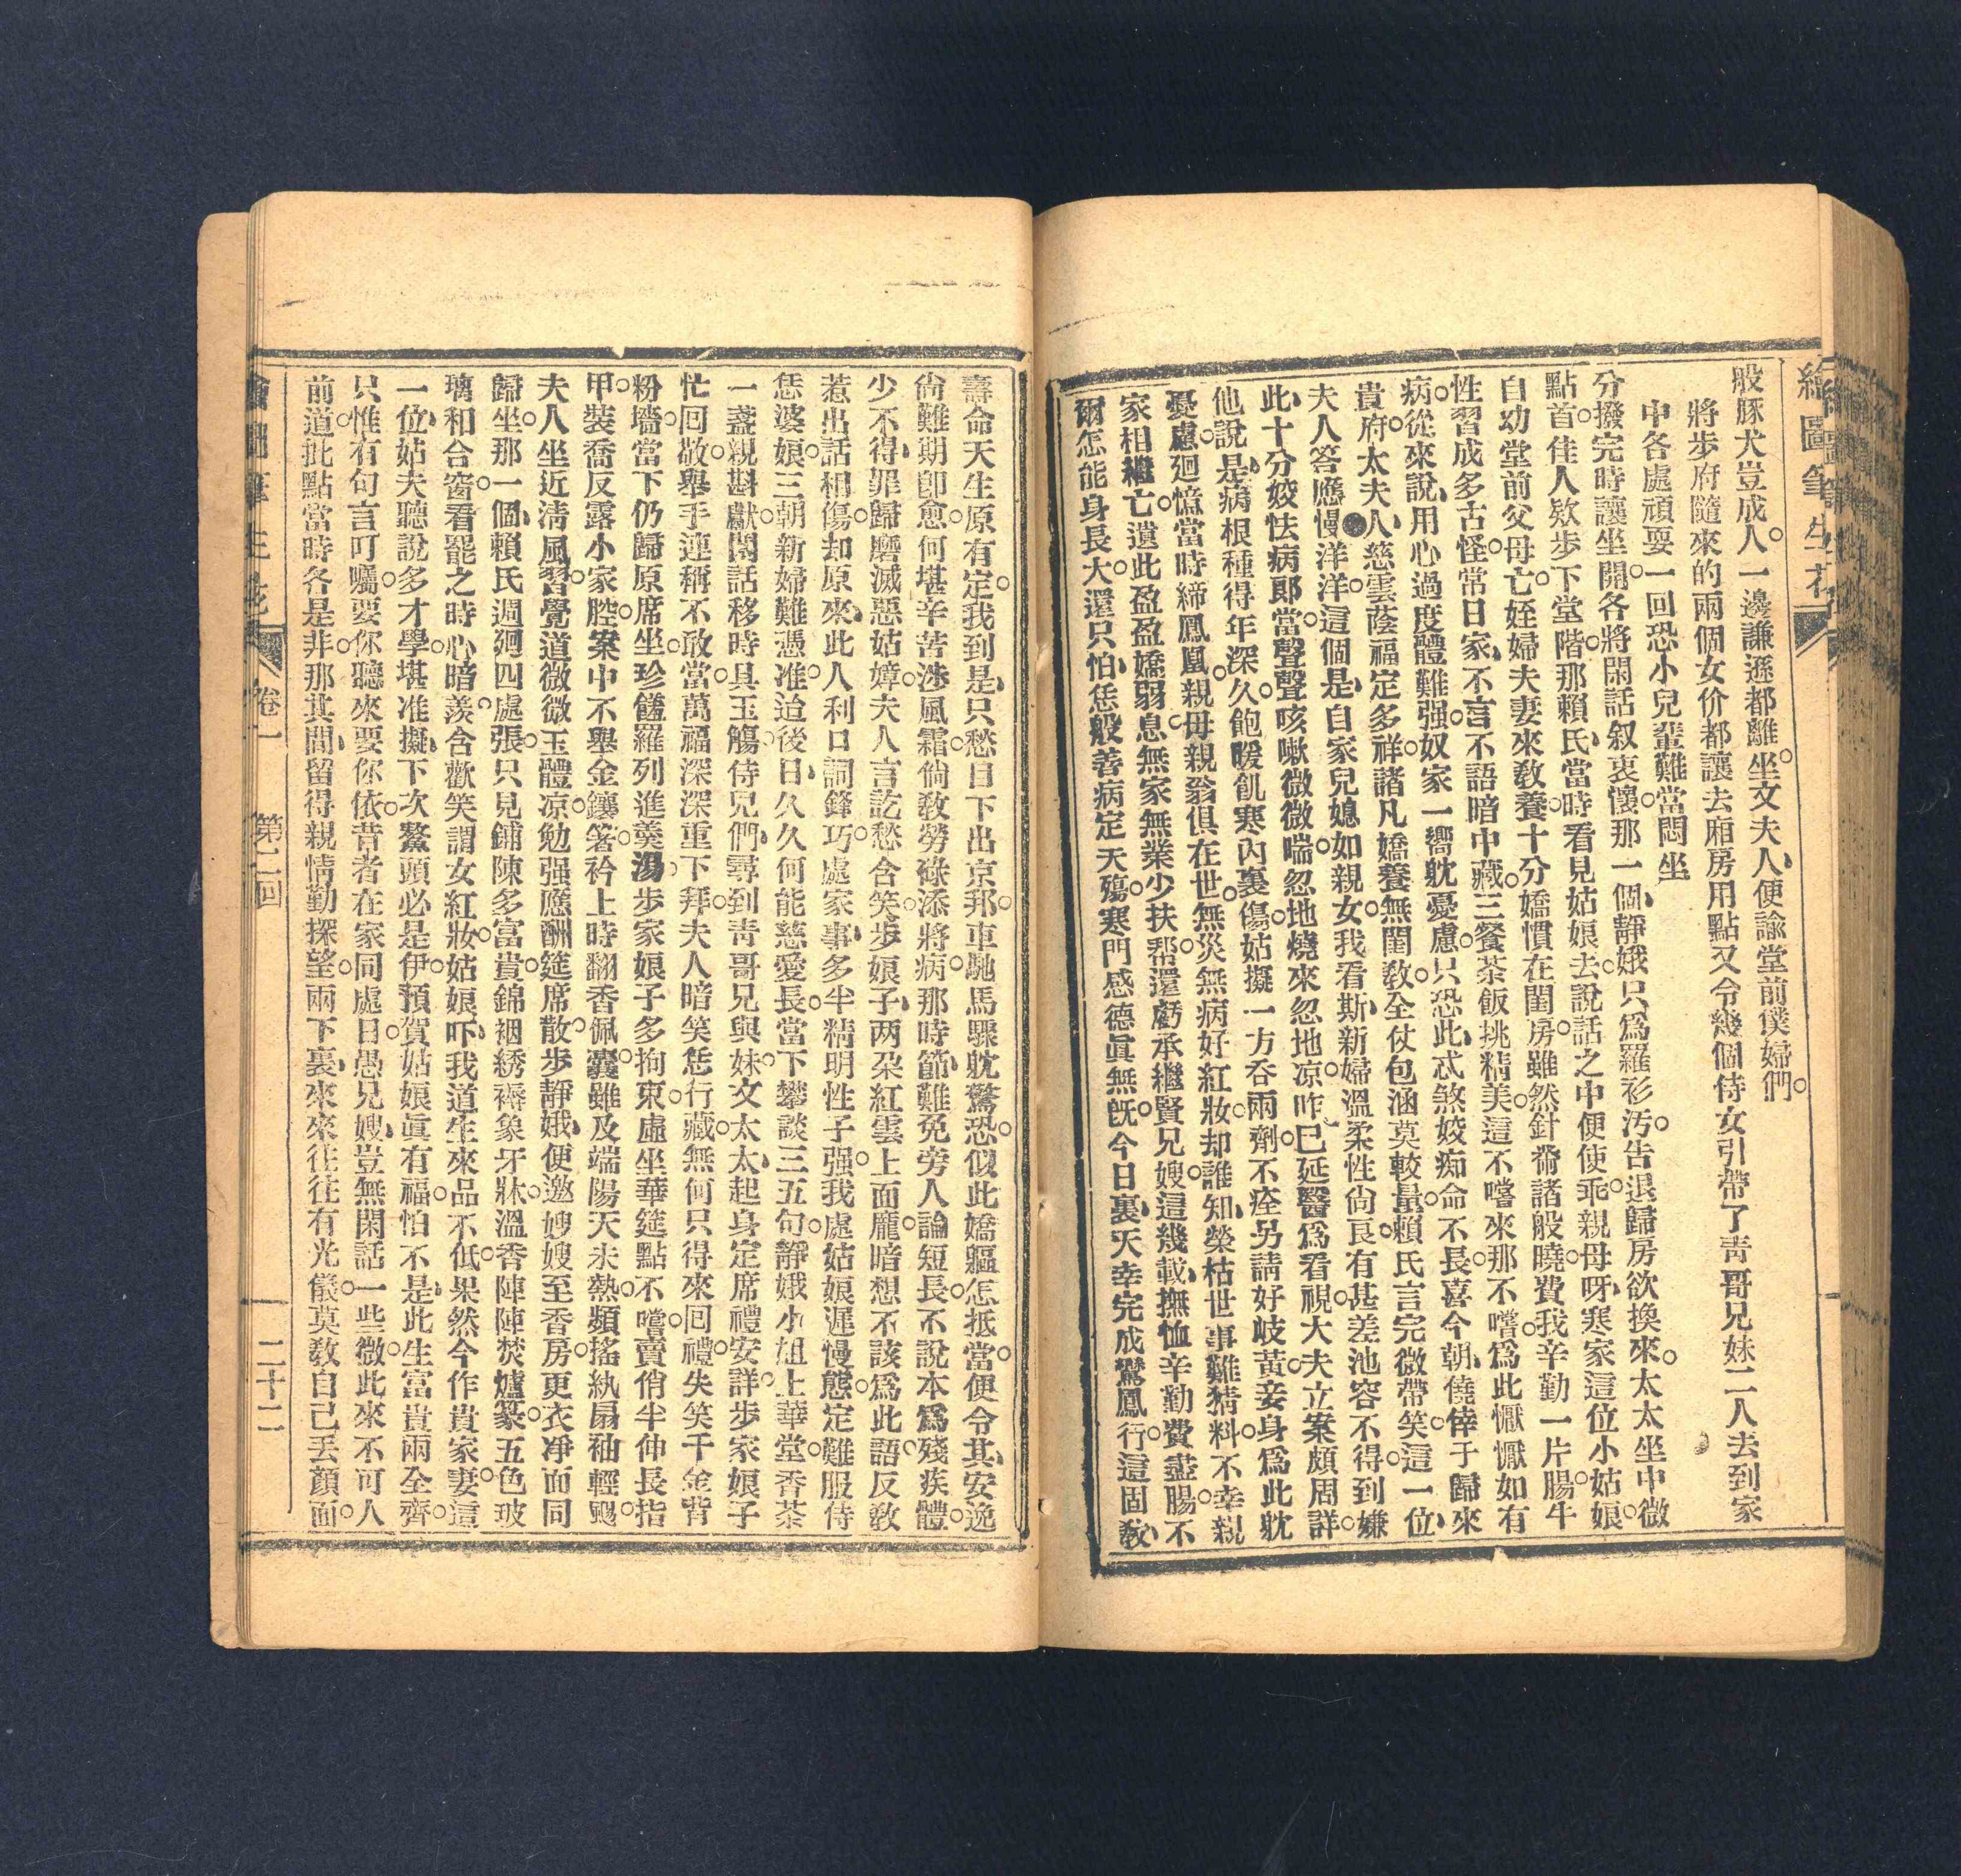 繪圖筆生花
般豚犬豈成人。一邊謙遜都離坐。文夫人、便諭堂前僕婦們。
將步府隨來的兩個女价都讓去廂房用點又令幾個侍女引帶了青哥兄妹二人去到家
中各處頑耍一回恐小兒輩難當悶坐
分撥完時讓坐開。各將閑話叙衷懷。那一個、靜娥只爲羅衫汚。告退歸房欲換來。太太坐中微
點首。佳人欵步下堂階。那賴氏、當時看見姑娘去。說話之中便使乖。親母呀、寒家這位小姑娘。
自幼堂前父母亡。姪婦夫妻來敎養。十分嬌慣在閨房。雖然針黹諸般曉。費我辛勤一片腸。牛
性習成多古怪。常日家、不言不語暗中藏。三餐茶飯挑精美。這不嚐來那不嚐。爲此懨懨如有
病。從來說、用心過度體難强。奴家一嚮躭憂慮。只恐此、忒煞姣痴命不長。喜今朝、僥倖于歸來
貴府。太夫人、慈雲蔭福定多祥。諸凡嬌養無閨敎。全仗包涵莫較量。賴氏言完微帶笑。這一位、
夫人答應慢洋洋。這個是、自家兒媳如親女。我看斯、新婦溫柔性尙良。有甚差池容不得。到嫌
此、十分姣怯病郎當。聲聲咳嗽微微喘。忽地燒來忽地凉。昨已延醫爲看視。大夫立案頗周詳。
他說是、病根種得年深久。飽暖飢寒內裏傷。姑擬一方吞兩劑。不痊另請好岐黃。妾身爲此躭
憂慮。廻憶當時締鳳凰。親母親翁俱在世。無災無病好紅妝。却誰知、榮枯世事難猜料。不幸親
家相繼亡。遺此盈盈嬌弱息。無家無業少扶帮。還虧承繼賢兄嫂。這幾載、撫恤辛勤費盡腸。不
爾怎能身長大。還只怕、恁般善病定天殤。寒門感德眞無旣。今日裏、天幸完成鸞鳳行。這固敎、
壽命天生原有定。我到是、只愁目下出京邦。車馳馬驟躭驚恐。似此嬌軀怎抵當。便令其、安逸
尙難期卽愈。何堪辛苦涉風霜。倘敎勞碌添將病。那時節、難免旁人論短長。不說本爲殘疾體。
少不得、罪歸磨滅惡姑嫜。夫人言訖愁含笑。步娘子、兩朶紅雲上面龐。暗想不該爲此語。反敎
惹出話相傷。却原來、此人利口詞鋒巧。處家事、多半精明性子强。我處姑娘遲慢態。定難服侍
恁婆娘。三朝新婦難憑准。迨後日、久久何能慈愛長。當下攀談三五句。靜娥小姐上華堂。香茶
一盞親斟獻。閑話移時具玉觴。侍兒們、尋到靑哥兄與妹。文太太、起身定席禮安詳。步家娘子
忙回敬。舉手連稱不敢當。萬福深深重下拜。夫人暗笑恁行藏。無何只得來回禮。失笑千金背
粉墻。當下仍歸原席坐。珍饈羅列進羹湯。步家娘子多拘束。虛坐華筵點不嚐。賣俏半伸長指
甲。裝喬反露小家腔。案中不舉金鑲箸。衿上時翻香佩囊。雖及端陽天未熱。頻搖紈扇袖輕颺。
夫人坐近淸風習。覺道微微玉體凉。勉强應酬筵席散。步靜娥、便邀嫂嫂至香房。更衣净面同
歸坐。那一個、賴氏週廻四處張。只見鋪陳多富貴。錦裀綉褥象牙牀。溫香陣陣焚爐篆。五色玻
璃和合窗。看罷之時心暗羨。含歡笑謂女紅妝。姑娘吓、我道生來品不低。果然今作貴家妻。這
一位、姑夫聽說多才學。堪准擬、下次鰲頭必是伊。預賀姑娘眞有福。怕不是、此生富貴兩全齊。
只惟有句言叮囑。要你聽來要你依。昔者在家同處日。愚兄嫂、豈無閑話一些微。此來不可人
前道。批點當時各是非。那其間、留得親情勤探望。兩下裏、來來往往有光儀。莫敎自己丢顏面。
卷一　第二回　二十二